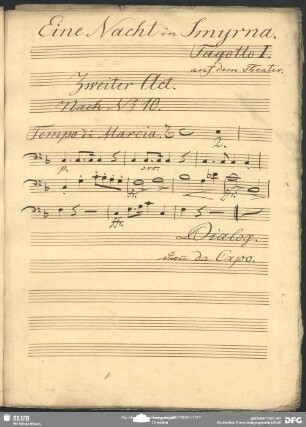 Eine Nacht in Smyrna.
Fagotto I.
auf dem Theater.
Zweiter Act.
Nach No 10.
Tempo di Marcia.
2.
p.
Dialog.
da Capo.
SLUB
DFG